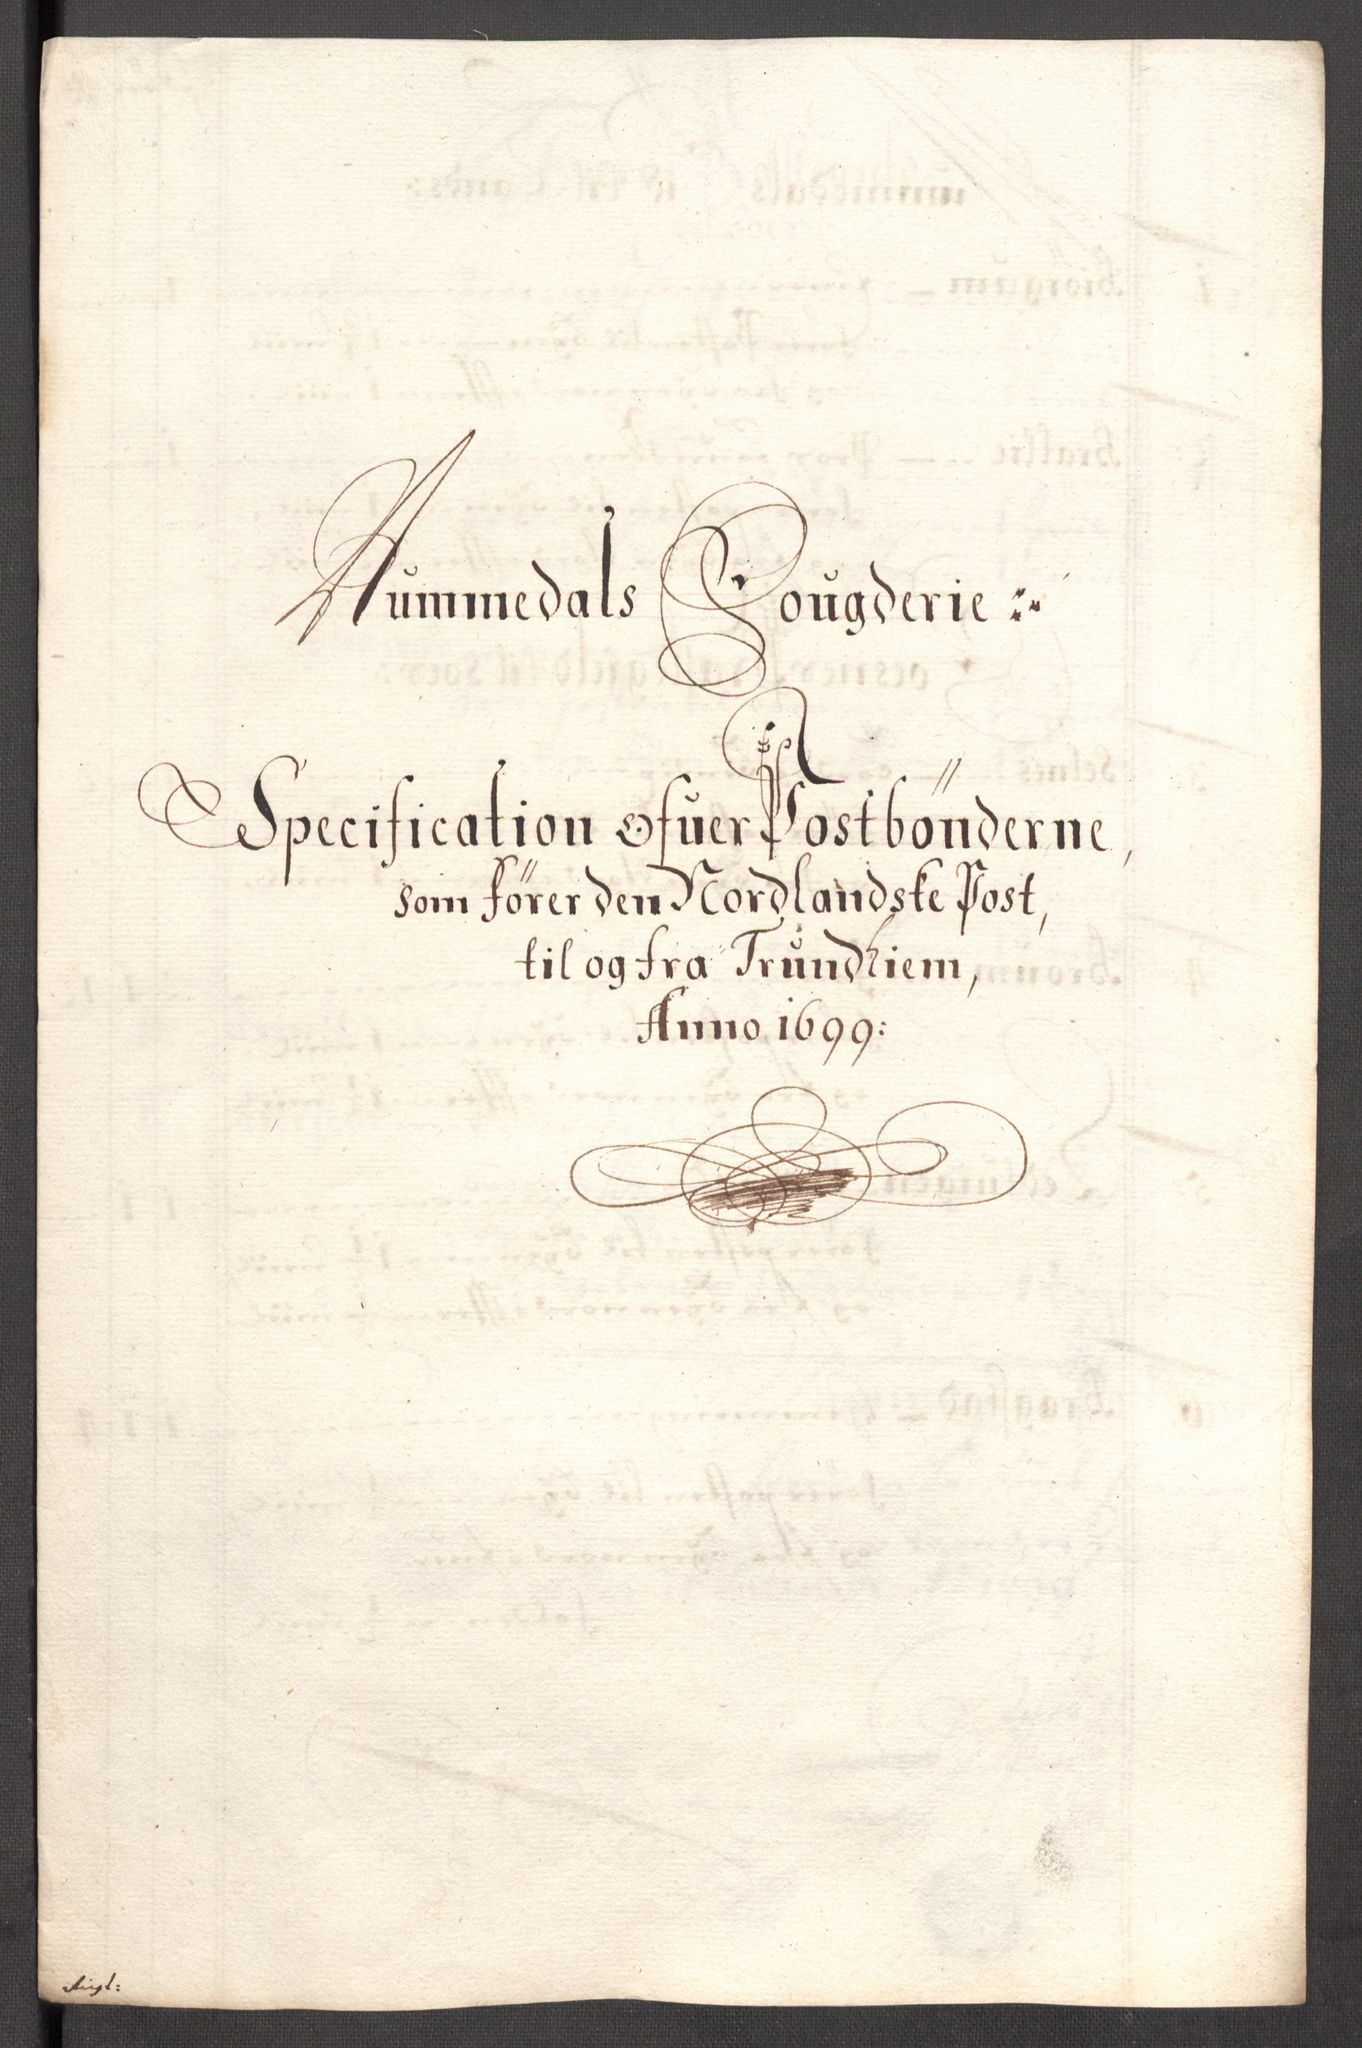 Nummedals Fougderie
Specification ofuer Postbönderne,
som förer den Nordlandske Post,
til og fra Trundhiem,
Anno 1699: